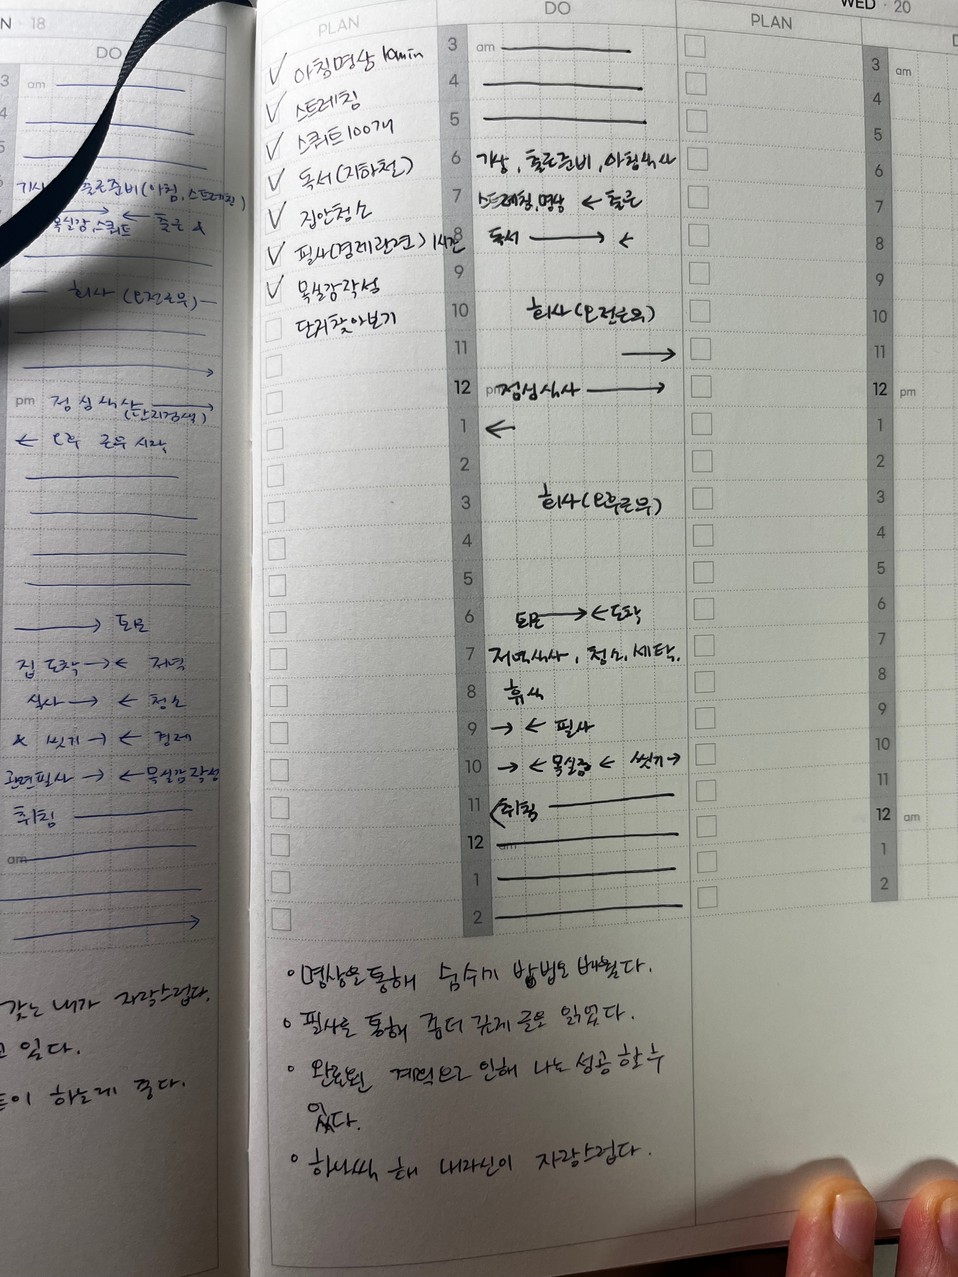 N · 18
DO
3 am
4
5
기상 출근준비(아침, 스트레칭)
목실감, 스쿼트 ← 출근 &
회사 (오전근무)
pm 점심식사
(단리검색)
← 오후 근무 시작
→ 퇴근
집 도착 → ← 저녁
식사 → ← 청소
& 씻기 → ← 경제
관련필사 → ← 목실감작성
취침
am
갖는 내가 자랑스럽다.
고 있다.
하는게 좋다.
PLAN
✓ 아침명상 10min
✓ 스트레칭
✓ 스쿼트100개
✓ 독서(지하철)
✓ 집안청소
✓ 필사(경제관련) 1시간
✓ 목실감작성
단리찾아보기
DO
3 am
4
5
6 기상, 출근준비, 아침식사
7 스트레칭, 명상 ← 출근
8 독서 → ←
9
10 회사(오전근무)
11 →
12 pm 점심식사 →
1 ←
2
3 회사(오후근무)
4
5
6 퇴근 → ← 도착
7 저녁식사, 청소, 세탁,
8 휴식
9 → ← 필사
10 → ← 목실감 ← 씻기 →
11 취침
12 am
1
2
• 명상을 통해 숨쉬기 방법을 배웠다.
• 필사를 통해 좀더 글을 읽었다.
• 완료된 계획으로 인해 나는 성공할수
있다.
• 하나씩 해 내자신이 자랑스럽다.
WED · 20
PLAN
D
3 am
4
5
6
7
8
9
10
11
12 pm
1
2
3
4
5
6
7
8
9
10
11
12 am
1
2